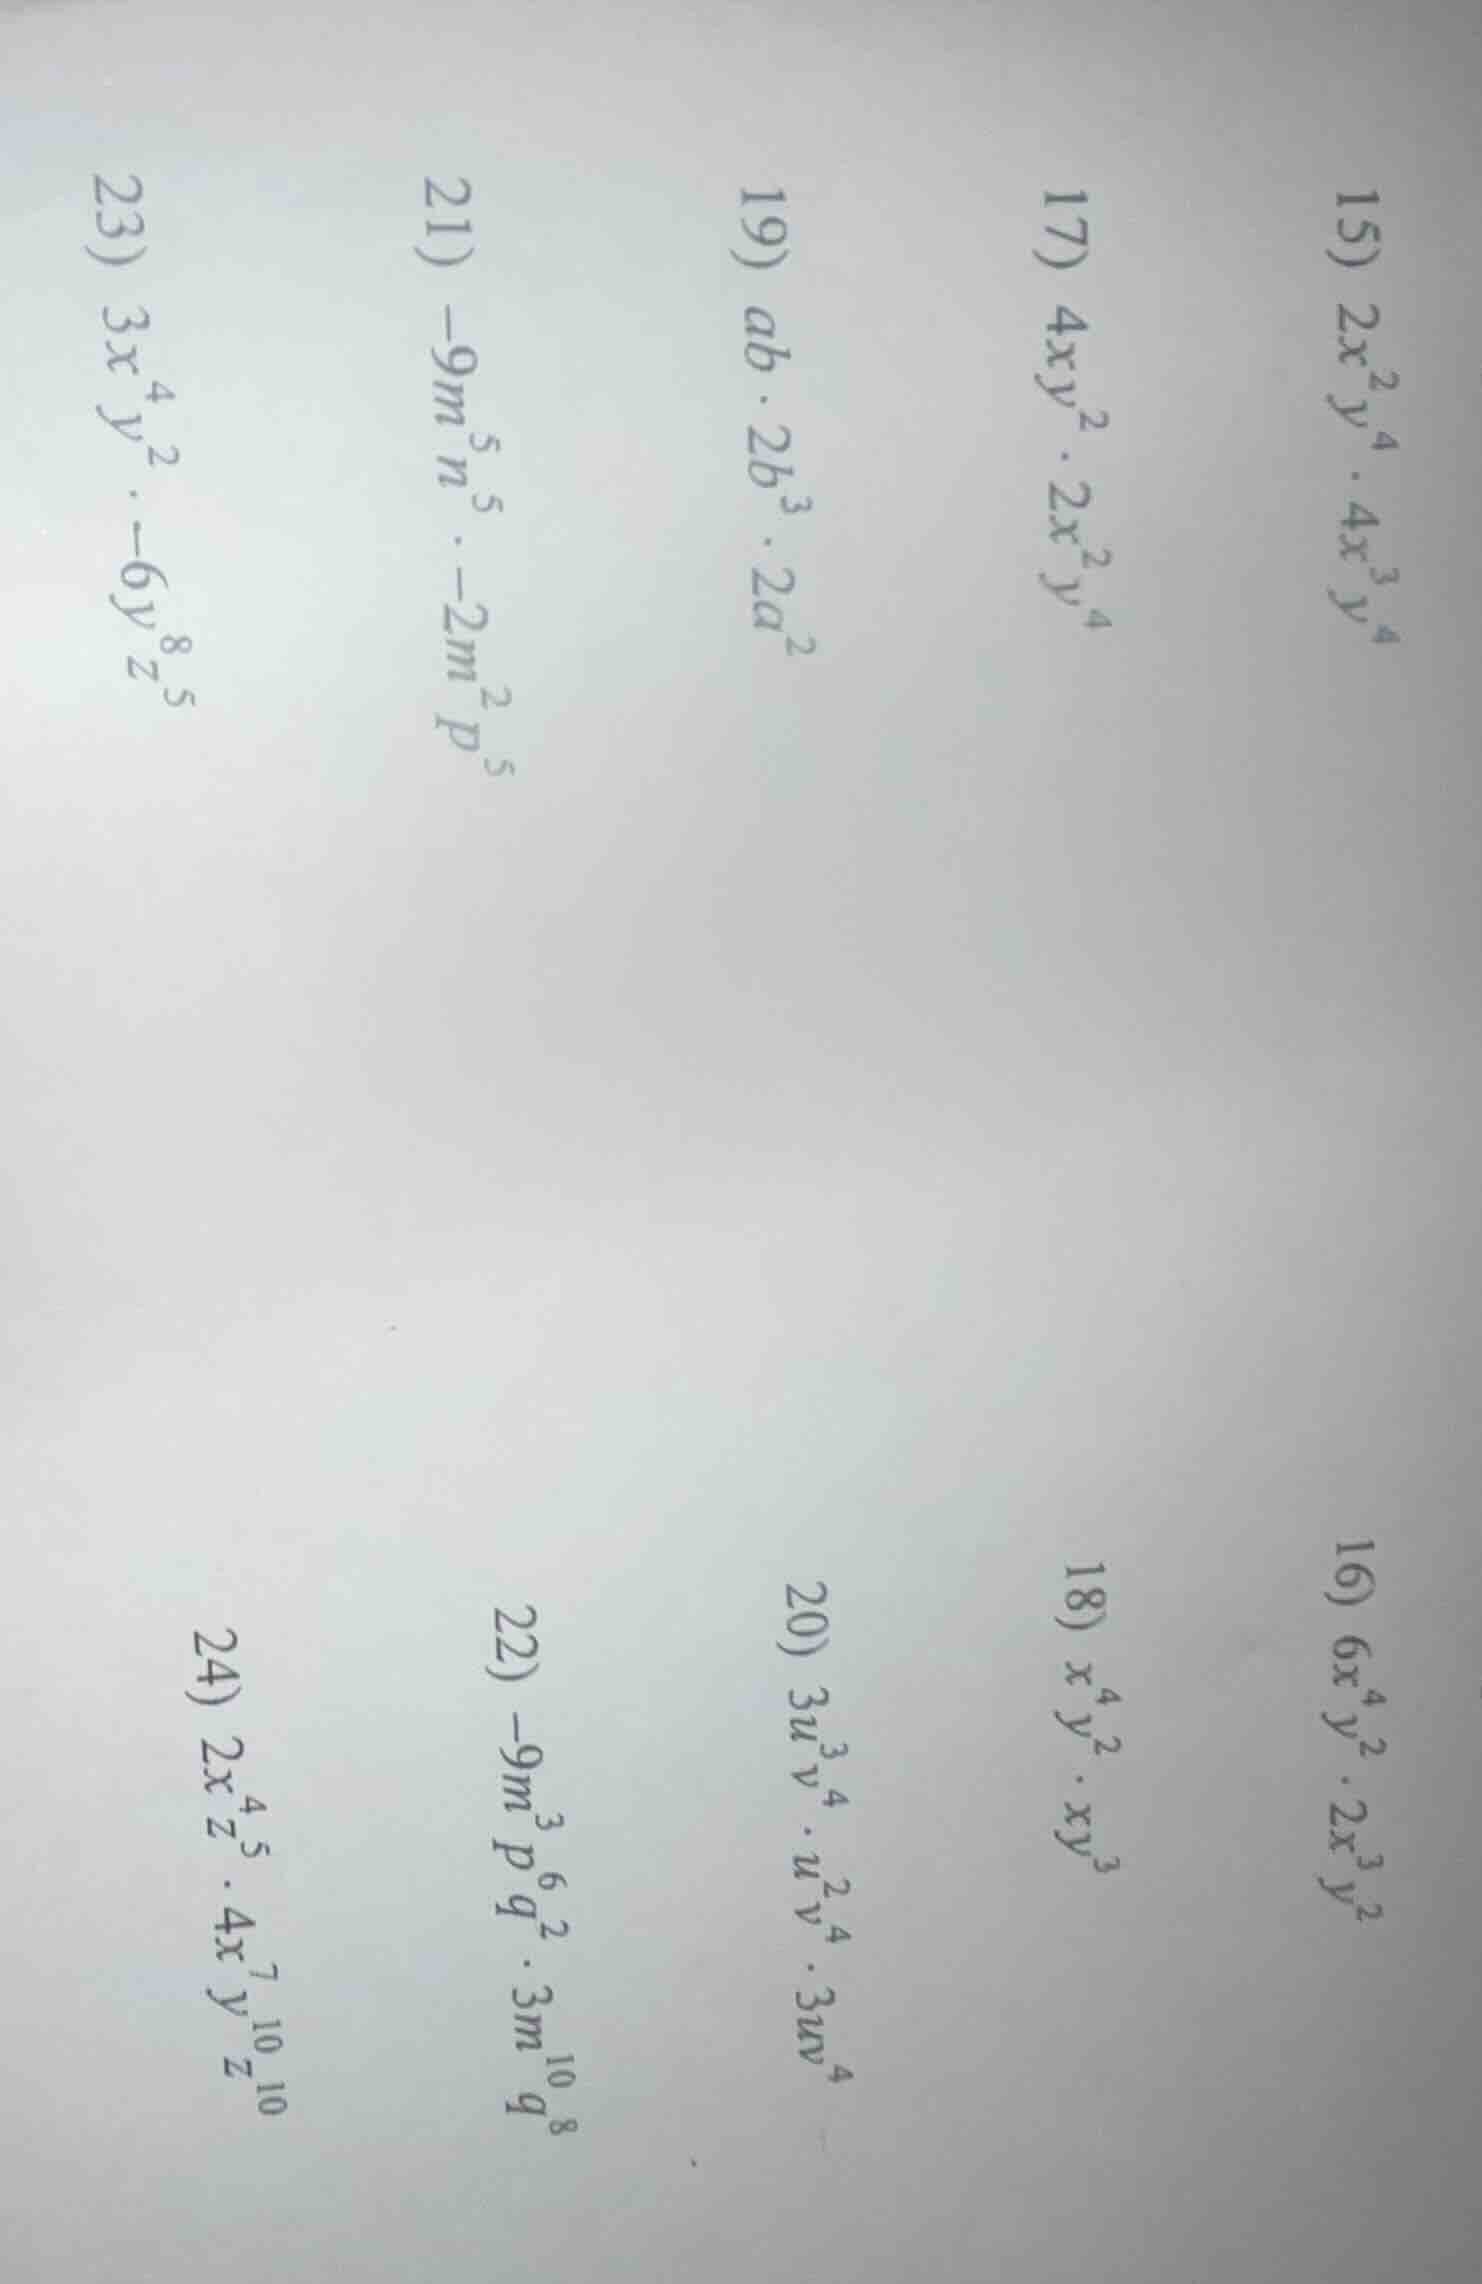 15) 2x²y⁴ · 4x³y⁴
16) 6x⁴y² · 2x³y²
17) 4xy² · 2x²y⁴
18) x⁴y² · xy³
19) ab · 2b³ · 2a²
20) 3u³v⁴ · u²v⁴ · 3uv⁴
21) −9m⁵n⁵ · −2m²p⁵
22) −9m³p⁶q² · 3m¹⁰q⁸
23) 3x⁴y² · −6y⁸z⁵
24) 2x⁴z⁵ · 4x⁷y¹⁰z¹⁰